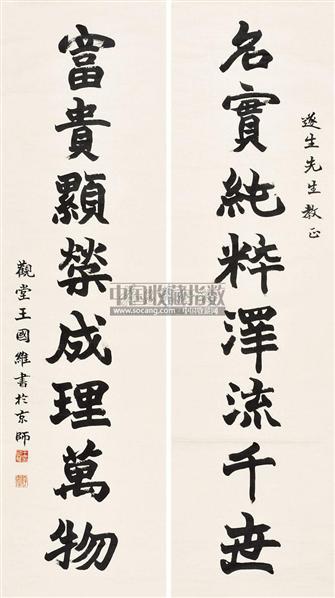 遂生先生教正
名實純粹澤流千世
富貴顯榮成理萬物
觀堂王國維書於京師
中国收藏指数
www.socang.com 中国收藏网